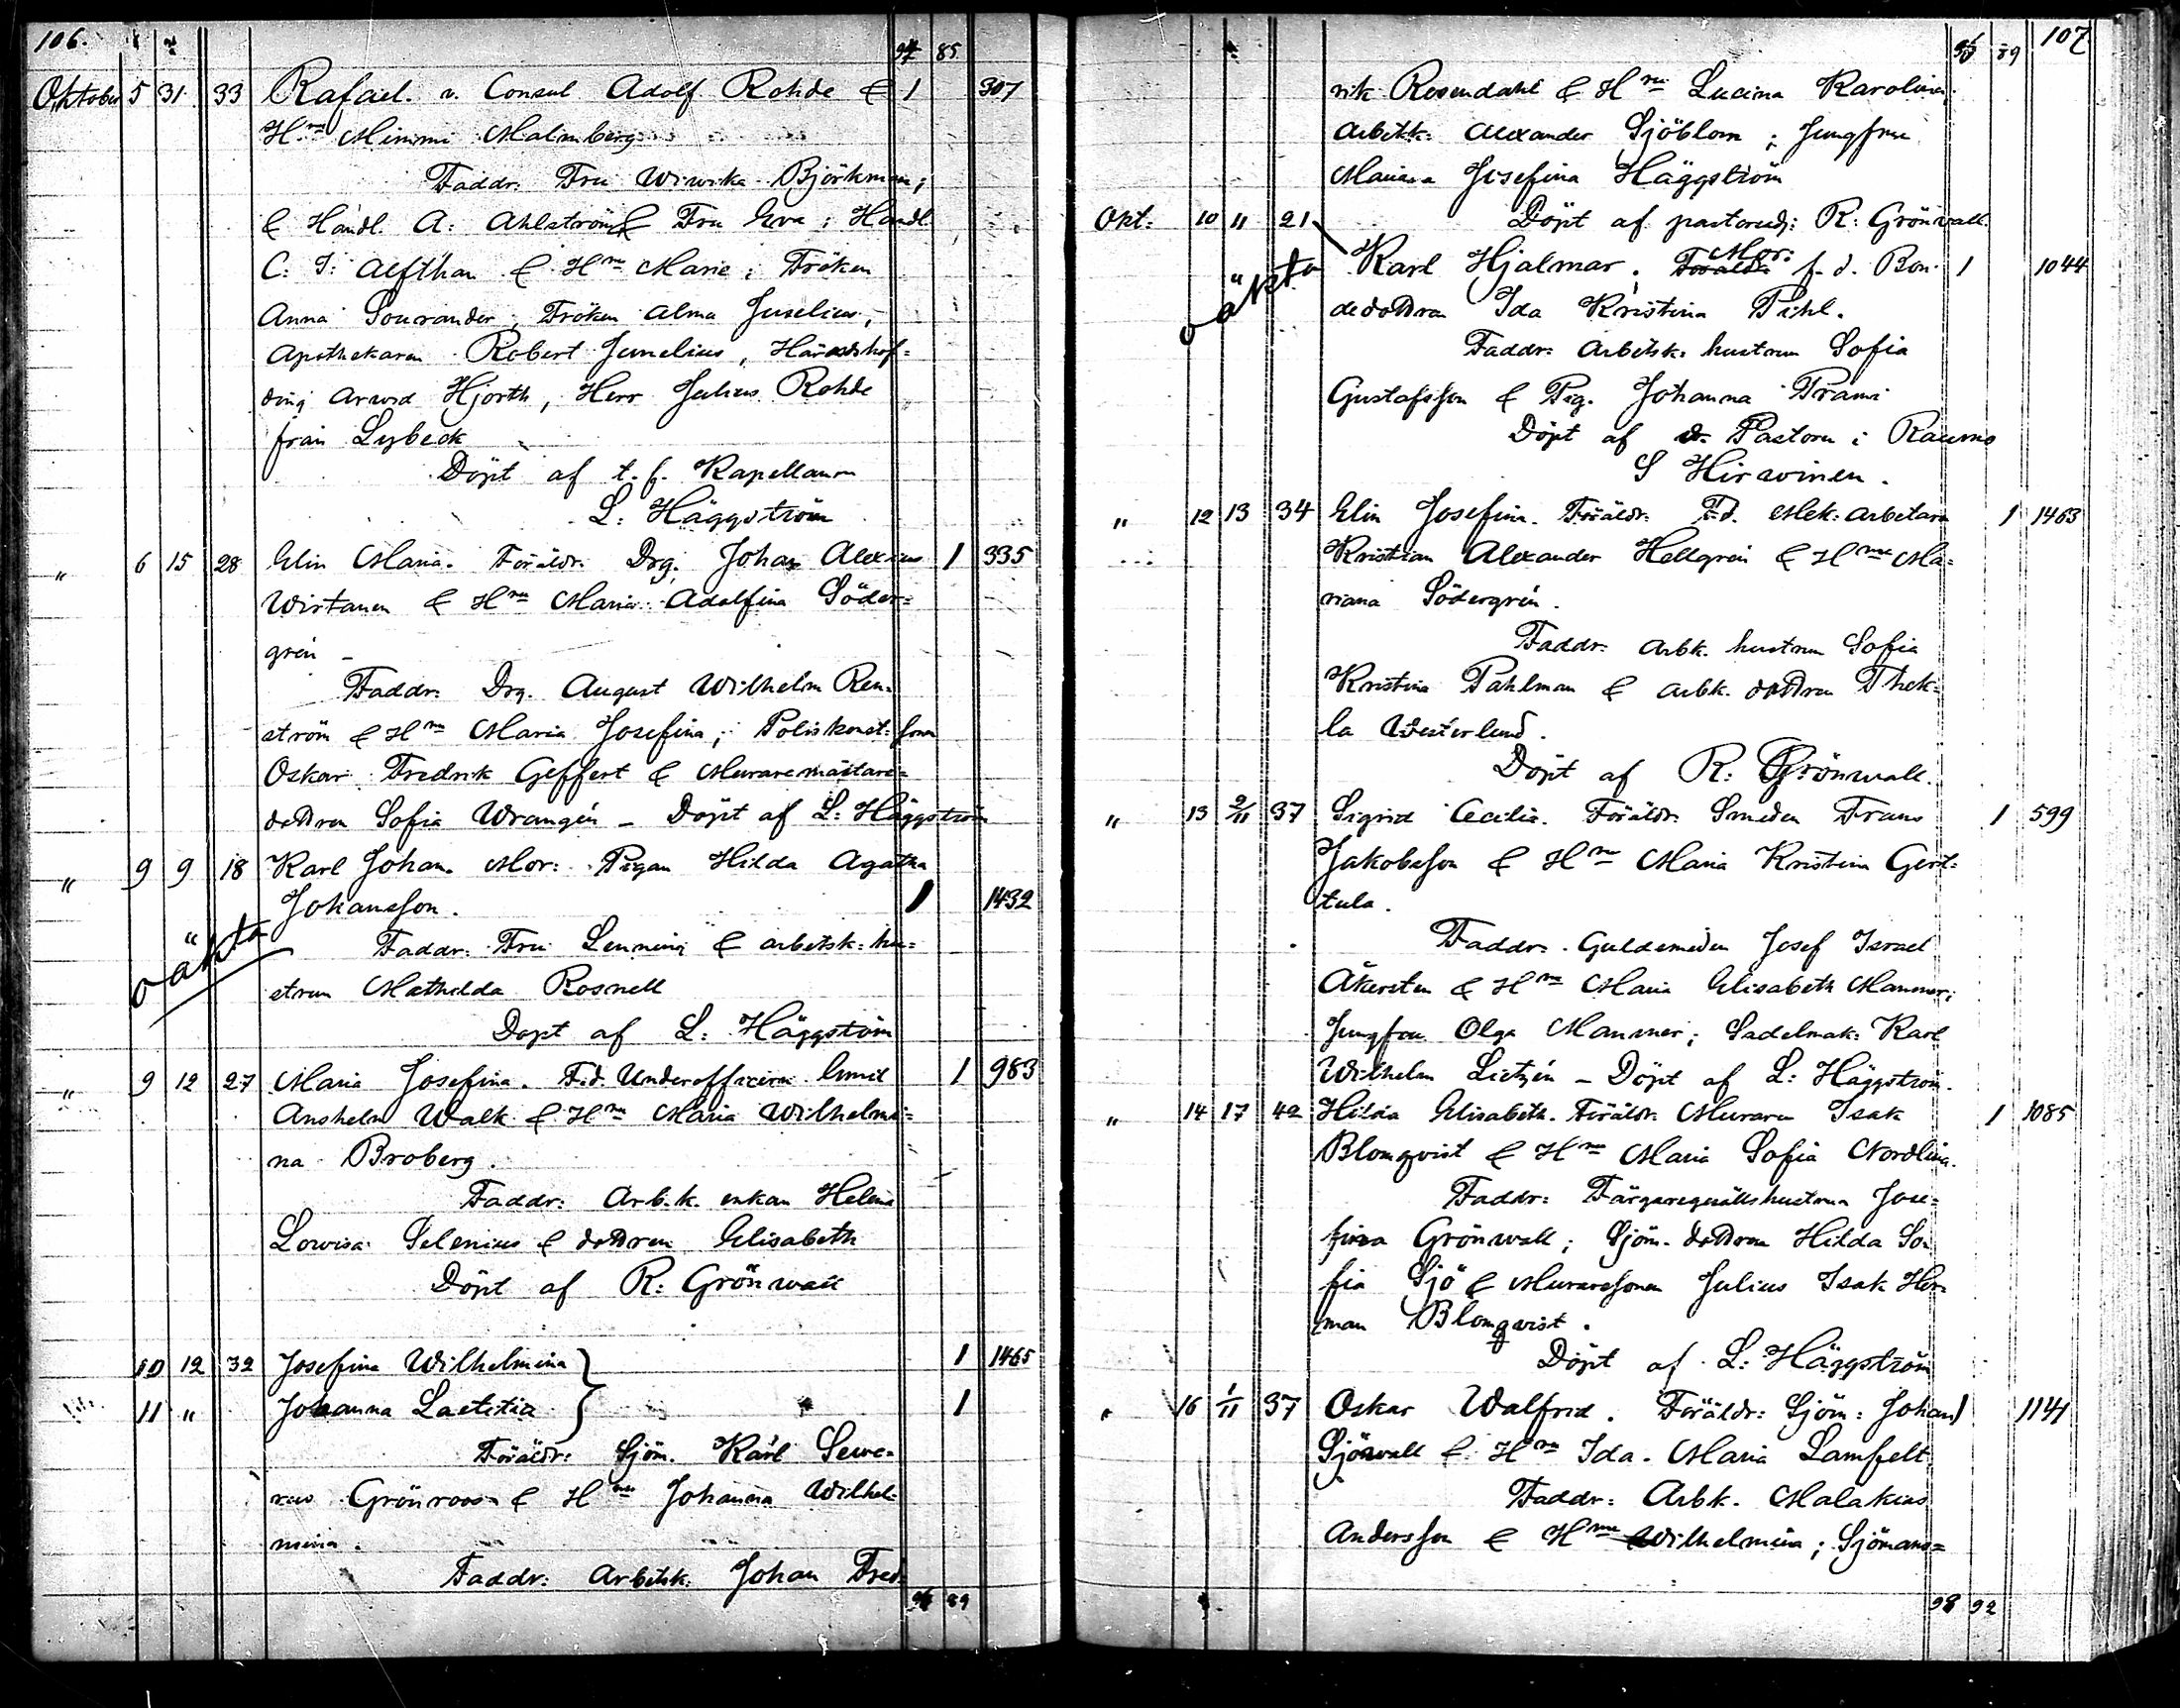 106.
94 85
Oktober 5 31 33 Rafael. v. Consul Adolf Rohde & 1 307
Hru Mimmi Malmberg
Faddr. Fru Wiwika Björkman;
& Handl. A: Ahlström & Fru Eva; Handl.
C: I: Alfthan & Hru Marie; Fröken
Anna Sourander; Fröken Alma Juselius;
Apothekaren Robert Junelius, Häradshöf=
ding Arwid Hjorth, Herr Julius Rohde
från Lybeck
Döpt af t. f. Kapellanen
L: Häggström
" 6 15 28 Elin Maria. Föräldr. Drg. Johan Alexius 1 335
Wirtanen & Hru Maria Adolfina Söder=
grén
Faddr: Drg. August Wilhelm Ren=
ström & Hru Maria Josefina; Poliskonst: sonen
Oskar Fredrik Geffert & Muraremästare=
dottren Sofia Wrangén – Döpt af L: Häggström
" 9 9 18 Karl Johan. Mor: Pigan Hilda Agatha
Johansson. 1 1432
oäkta
Faddr: Fru Lenning & arbetsk: hu=
strun Mathilda Rosnell
Döpt af L: Häggström
" 9 12 27 Maria Josefina. F.d. Underofficern Emil 1 983
Anshelm Walk & Hru Maria Wilhelmi=
na Broberg.
Faddr: Arb.k. enkan Helena
Lowisa Selenius & dottren Elisabeth
Döpt af R: Grönwall
10 12 32 Josefina Wilhelmina 1 1465
11 " Johanna Laetitia 1
Föräldr: Sjöm. Karl Seve=
rus Grönroos & Hru Johanna Wilhel=
mina.
Faddr: Arbetsk. Johan Fred=
96 89
107
96 89
rik Rosendahl & Hru Lucina Karolina;
Arbetsk: Alexander Sjöblom; Jungfru
Mariana Josefina Häggström
Okt: 10 11 21 Döpt af pastoradj: R: Grönwall.
oäkta
Karl Hjalmar. Föräldr Mor: f. d. Bon= 1 1044
dedottren Ida Kristina Pihl.
Faddr: Arbetsk: hustrun Sofia
Gustafsson & Pig. Johanna Prami
Döpt af Pastorn i Raumo
S Hirwinen.
" 12 13 34 Elin Josefina. Föräldr: F.d. Mek: arbetaren 1 1463
Kristian Alexander Hellgrén & Hru Ma=
riana Södergrén.
Faddr: Arbk. hustrun Sofia
Kristina Pahlman & Arbk. dottren Thek=
la Westerlund.
Döpt af R: Grönwall.
" 13 2/11 37 Sigrid Cecilia. Föräldr: Smeden Frans 1 599
Jakobsson & Hru Maria Kristina Gert=
tula.
Faddr: Guldsmeden Josef Israel
Åkersten & Hru Maria Elisabeth Manner;
Jungfru Olga Manner; Sadelmak: Karl
Wilhelm Lietzén – Döpt af L: Häggström.
" 14 17 42 Hilda Elisabeth. Föräldr: Muraren Isak 1 1085
Blomqvist & Hru Maria Sofia Nordling.
Faddr: Färgaregesällshustrun Jose=
fina Grönwall; Sjöm. dottren Hilda So=
fia Sjö & Muraresonen Julius Isak Her=
man Blomqvist.
Döpt af L: Häggström
" 16 1/11 37 Oskar Walfrid. Föräldr: Sjöm: Johan 1 1141
Sjövall & Hru Ida Maria Lamfelt
Faddr: Arbk. Malakias
Andersson & Hru Wilhelmina; Sjömans=
98 92